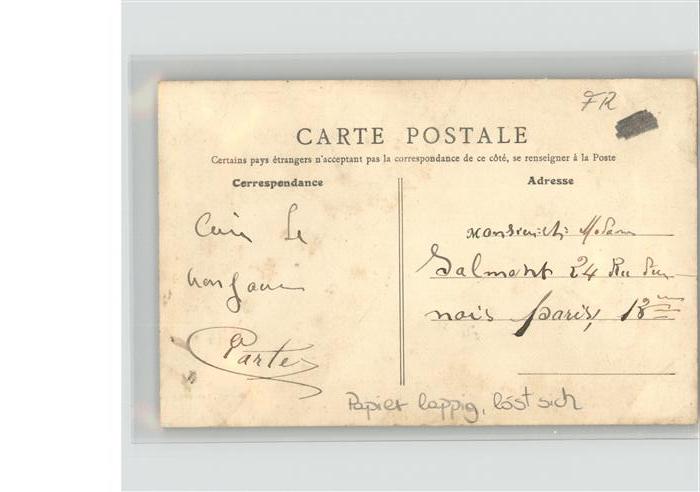 FR
CARTE POSTALE
Certains pays étrangers n'acceptant pas la correspondance de ce côté, se renseigner à la Poste
Correspondance
Adresse
le
Partes
Madam
Salmont 24 Rue
nois paris, 18
Papier lappig, löst sich